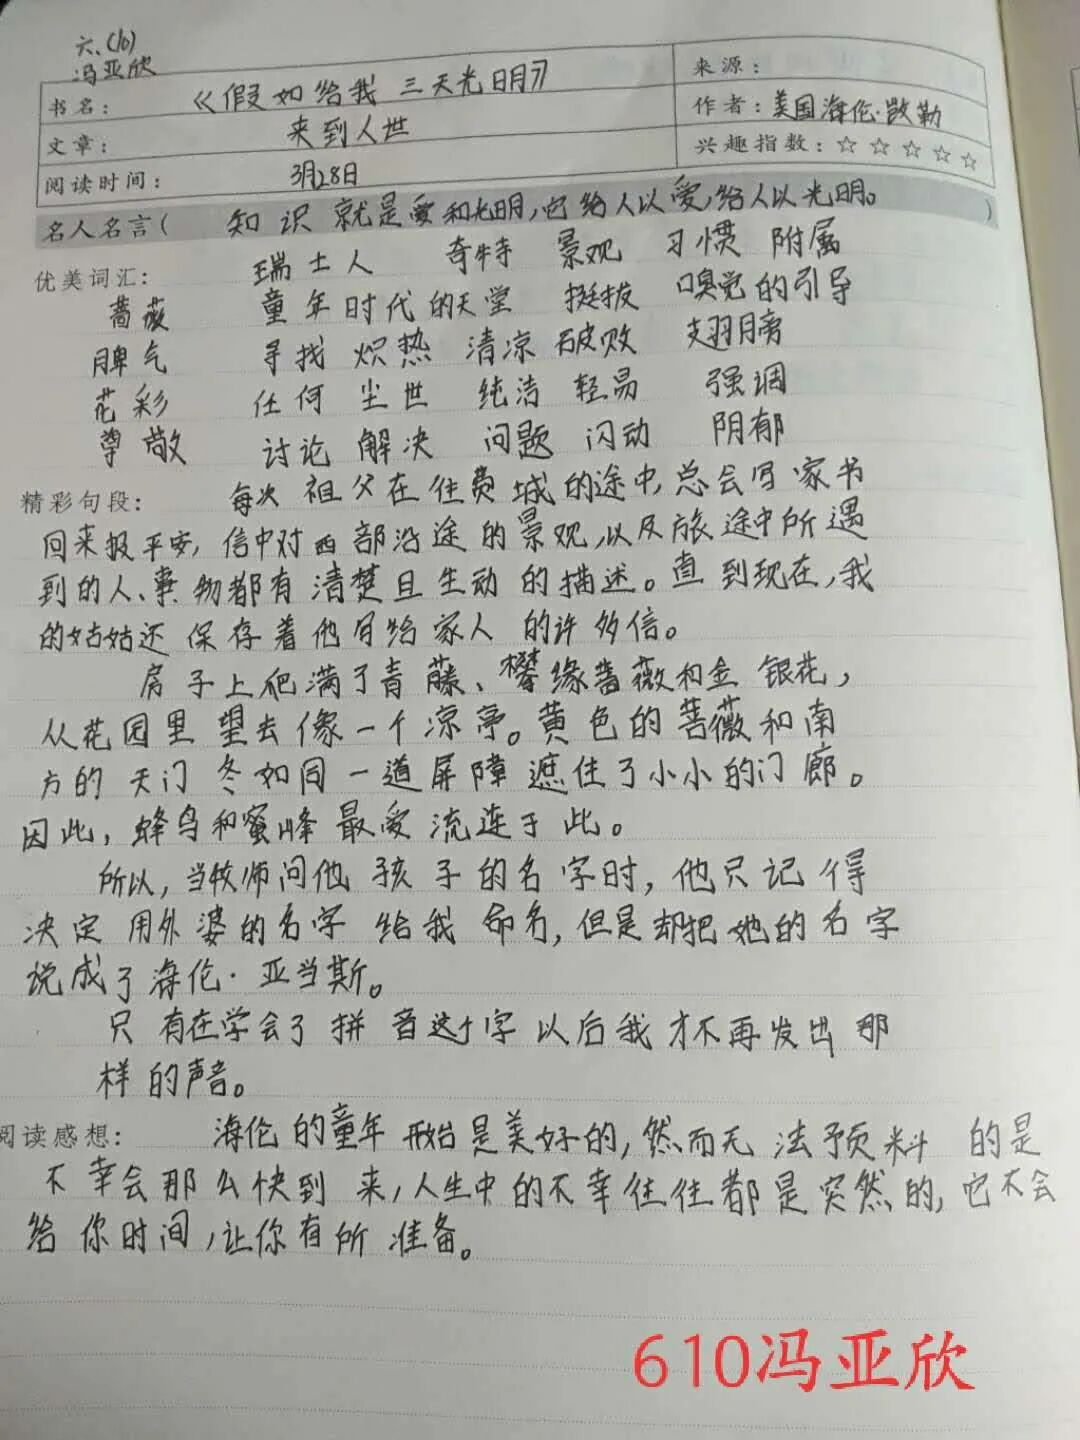 六、(10)
冯亚欣
书名：《假如给我三天光明》
来源：
文章：来到人世
作者：美国海伦·凯勒
阅读时间：3月28日
兴趣指数：☆☆☆☆☆
名人名言( 知识就是爱和光明，它给人以爱，给人以光明。 )
优美词汇： 瑞士人 奇特 景观 习惯 附属
蔷薇 童年时代的天堂 挺拔 嗅觉的引导
脾气 寻找 炽热 清凉 破败 翅膀
花彩 任何 尘世 纯洁 轻易 强调
尊敬 讨论 解决 问题 闪动 阴郁
精彩句段： 每次祖父在往费城的途中，总会写家书
回来报平安，信中对西部沿途的景观，以及旅途中所遇
到的人、事物都有清楚且生动的描述。直到现在，我
的姑姑还保存着他写给家人的许多信。
房子上爬满了青藤、攀缘蔷薇和金银花，
从花园里望去像一个凉亭。黄色的蔷薇和南
方的天门冬如同一道屏障遮住了小小的门廊。
因此，蜂鸟和蜜蜂最爱流连于此。
所以，当牧师问他孩子的名字时，他只记得
决定用外婆的名字给我命名，但是却把她的名字
说成了海伦·亚当斯。
只有在学会了拼音这个字以后我才不再发出那
样的声音。
阅读感想： 海伦的童年开始是美好的，然而无法预料的是
不幸会那么快到来，人生中的不幸往往都是突然的，它不会
给你时间，让你有所准备。
610冯亚欣